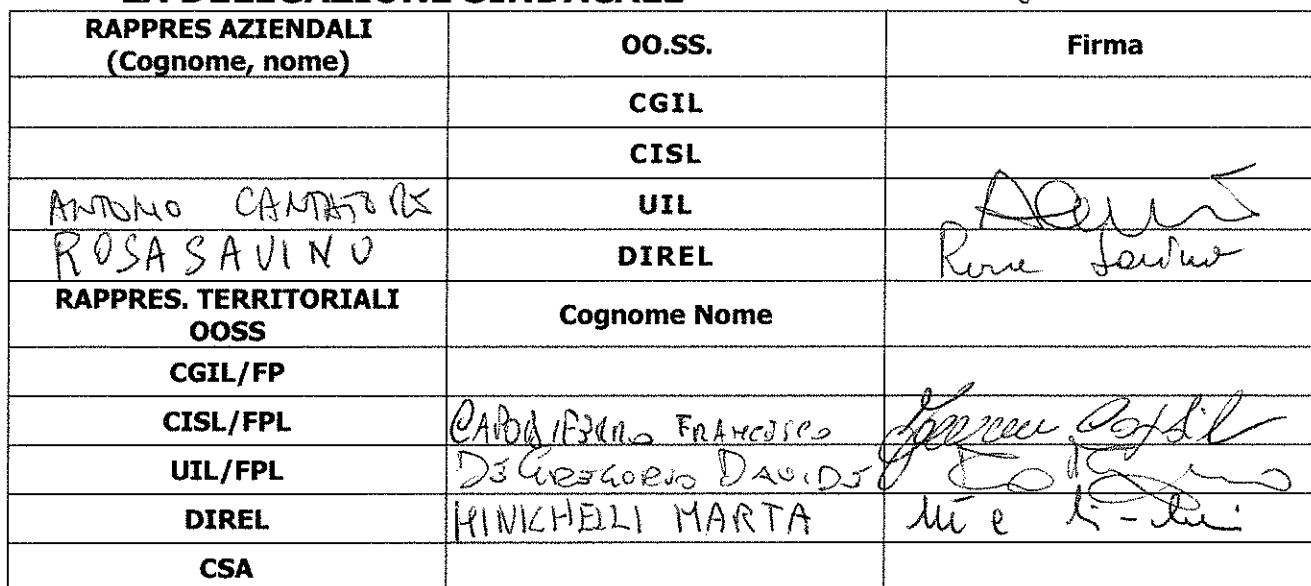 LA DELEGAZIONE SINDACALE
RAPPRES AZIENDALI
(Cognome, nome)
OO.SS.
Firma
CGIL
CISL
ANTONIO CANTATORE
UIL
ROSA SAVINO
DIREL
Rosa Savino
RAPPRES. TERRITORIALI
OOSS
Cognome Nome
CGIL/FP
CISL/FPL
CAPODIFERRO FRANCESCO
UIL/FPL
DE GREGORIO DAVIDE
DIREL
MINICHELLI MARTA
CSA